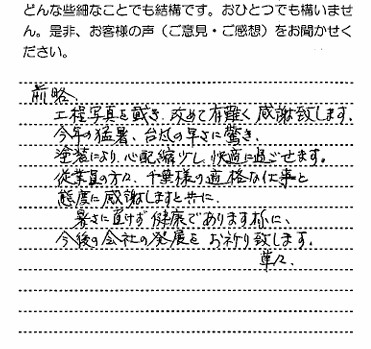 どんな些細なことでも結構です。おひとつでも構いませ
ん。是非、お客様の声（ご意見・ご感想）をお聞かせく
ださい。
前略、
工程写真を戴き、改めて有難く感謝致します。
今年の猛暑、台風の早さに驚き、
塗装により、心配縮少し、快適に過ごせます。
従業員の方々、千葉様の適格な仕事と
態度に感謝しますと共に、
暑さに負けず健康であります様に、
今後の会社の発展をお祈り致します。
草々、